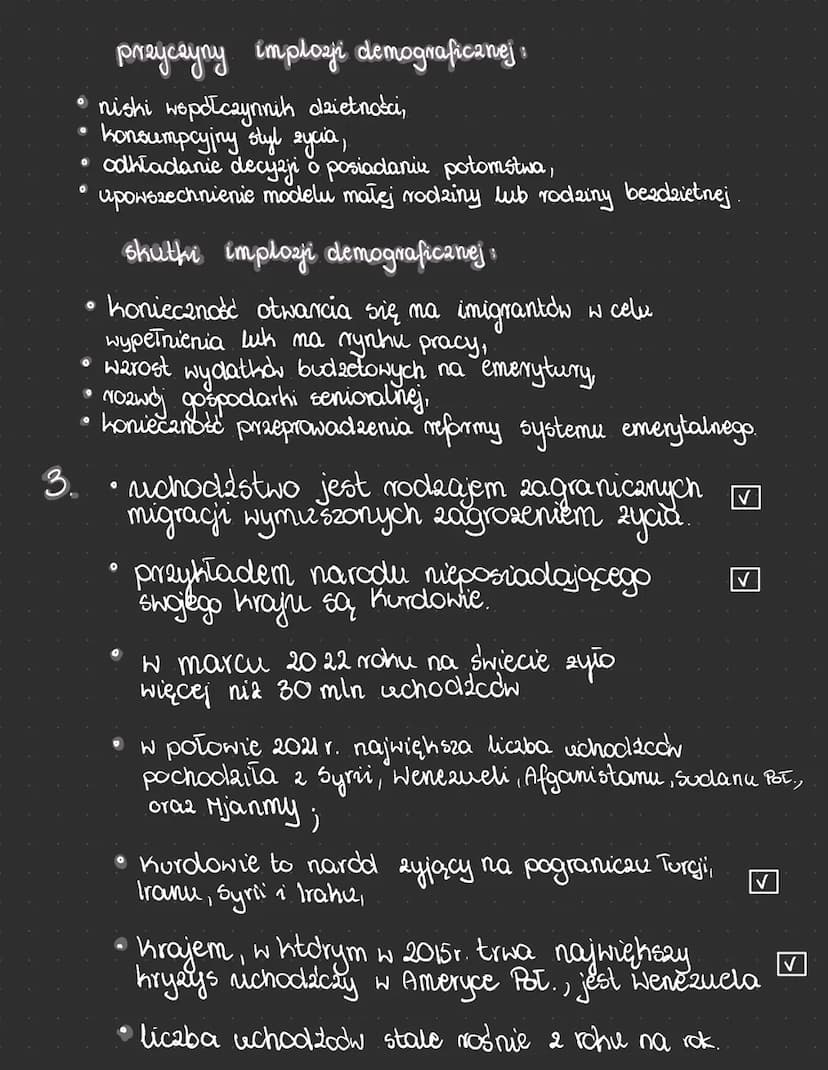 przyczyny implozji demograficznej:
• niski współczynnik dzietności,
• konsumpcyjny styl życia,
• odkładanie decyzji o posiadaniu potomstwa,
• upowszechnienie modelu małej rodziny lub rodziny bezdzietnej.
skutki implozji demograficznej:
• konieczność otwarcia się na imigrantów w celu
wypełnienia luk na rynku pracy,
• wzrost wydatków budżetowych na emerytury,
• rozwój gospodarki senioralnej,
• konieczność przeprowadzenia reformy systemu emerytalnego.
3. • uchodźstwo jest rodzajem zagranicznych
migracji wymuszonych zagrożeniem życia. ☑
• przykładem narodu nieposiadającego ☑
swojego kraju są Kurdowie.
• w marcu 2022 roku na świecie żyło
więcej niż 30 mln uchodźców
• w połowie 2021 r. największa liczba uchodźców
pochodziła z Syrii, Wenezueli, Afganistanu, Sudanu Poł.,
oraz Mjanmy;
• Kurdowie to naród żyjący na pograniczu Turcji, ☑
Iranu, Syrii i Iraku,
• krajem, w którym w 2015r. trwa największy ☑
kryzys uchodźczy w Ameryce Poł., jest Wenezuela
• liczba uchodźców stale rośnie z roku na rok.